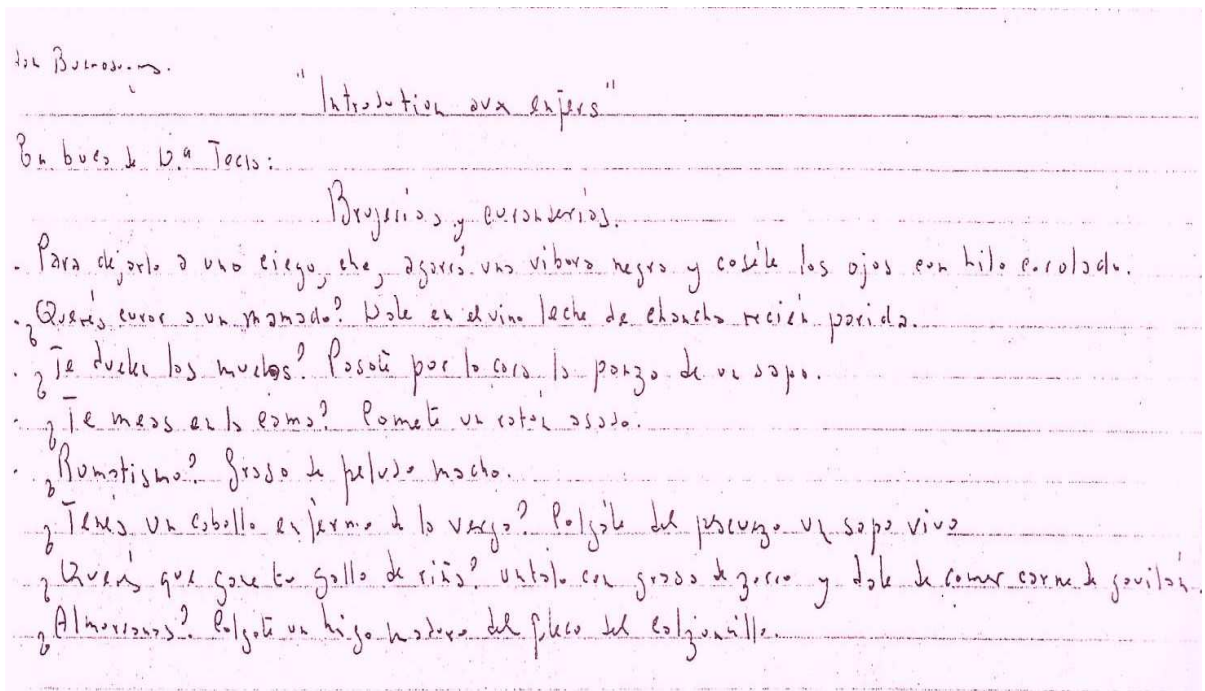 "Introdution aux enfers"
En buca de D.ª Tecla:
Brujerías y curanderías.
. Para dejarlo a uno ciego, che, agarrá una víbora negra y coséle los ojos con hilo colorado.
. ¿Querés curar a un mamado? Dale en el vino leche de chancha recién parida.
. ¿Te duelen las muelas? Pasate por la cara la panza de un sapo.
. ¿Te meas en la cama? Comete un ratón asado.
. ¿Rumatismo? Grasa de peludo macho.
¿Tenés un caballo enfermo de la verga? Colgale del pescuezo un sapo vivo
¿Querés que gane tu gallo de riña? untalo con grasa de zorro y dale de comer carne de gavilán.
¿Almorranas? Colgate un higo maduro del fleco del calzoncillo.